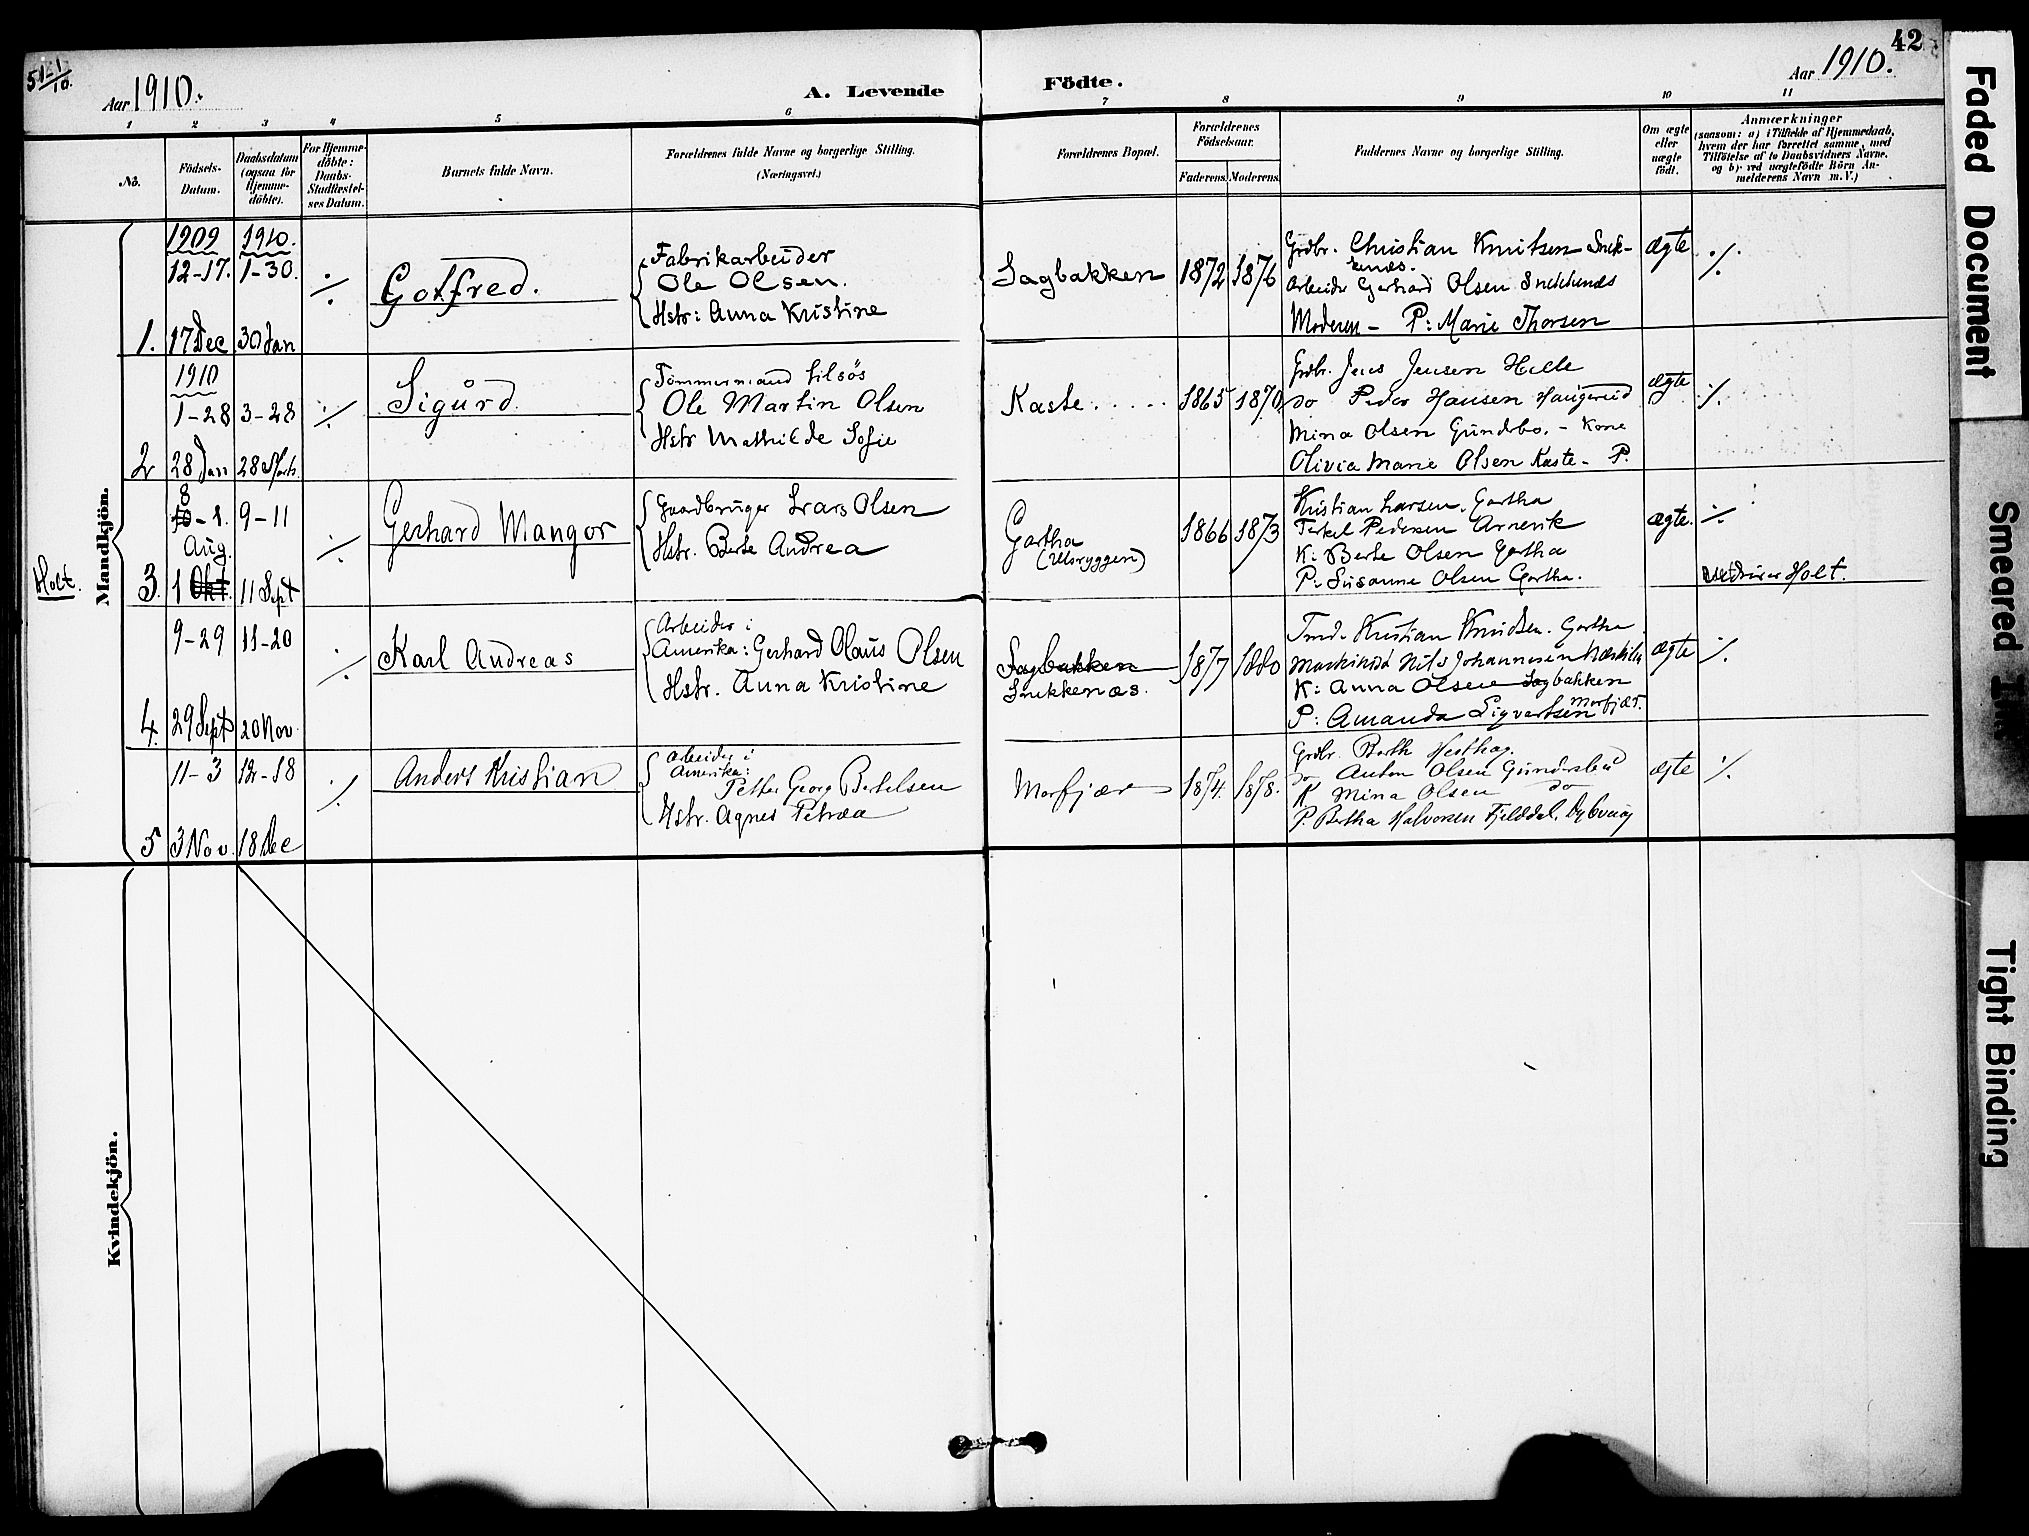 42
Aar 1910.
A. Levende Födte.
Aar 1910.
1 2 3 4 5 6 7 8 9 10 11
No.
Födsels-
Datum.
Daabsdatum
(ogsaa for
Hjemme-
döbte).
For Hjemme-
döbte:
Daabs-
Stadfæstel-
ses Datum.
Barnets fulde Navn.
Forældrenes fulde Navne og borgerlige Stilling.
(Næringsvei.)
Forældrenes Bopæl.
Forældrenes
Födselsaar.
Faderens. Moderens.
Faddernes Navne og borgerlige Stilling.
Om ægte
eller
uægte
födt.
Anmærkninger
(saasom: a) i Tilfælde af Hjemmedaab,
hvem der har forrettet samme, med
Tilföielse af to Daabsvidners Navne,
og b) ved uægtefödte Börn An-
melderens Navn m. V.)
Mandkjön.
1909 1910.
12-17. 1-30.
1. 17 Dec 30 Jan
./.
Gotfred.
Fabrikarbeider
Ole Olsen.
Hstr: Anna Kristine
Sagbakken
1872 1876
Grdbr. Christian Knutsen Snek-
kenes.
Arbeider Gerhard Olsen Snekkenes
Moderen - P: Marie Thorsen
ægte
./.
1910
1-28 3-28
2 28 Jan 28 Marts.
./.
Sigurd.
Tömmermand tilsös
Ole Martin Olsen
Hstr Mathilde Sofie
Kaste.....
1865 1870
Grdbr. Jens Jensen Helle
do Peder Hansen Haugerud
Mina Olsen Gundsbo. - Kone
Olivia Marie Olsen Kaste - P.
ægte
./.
Holt.
8
10 - 1. 9-11
Aug.
3. 1 Okt. 11 Sept
./.
Gerhard Mangor
Gaardbruger Lars Olsen
Hstr. Berte Andrea
Gartha
1866 1873
Kristian Larsen. Gartha
Terkel Pedersen Arnevik
K: Berte Olsen Gartha
P: Susanne Olsen Gartha.
ægte.
./.
Holt.
9-29 11-20
4. 29 Sept 20 Nov.
./.
Karl Andreas
Arbeider i
Amerika: Gerhard Olaus Olsen
Hstr. Anna Kristine
Sagbakken
Snekkenæs.
1877 1880
Kristian Knudsen. Gartha
Maskinist Nils Johannesen
K: Anna Olsen Sagbakken
P: Amanda Sigvartsen Morfjær.
ægte
./.
11-3 12-18
5 3 Nov. 18 Dec
./.
Anders Kristian
Arbeider i
Amerika:
Petter Georg Bertelsen
Hstr. Agnes Petrea
Morfjær
1874. 1878.
Grdbr. Berth Hesthag.
do Anton Olsen Gundersbu
K Mina Olsen do
P. Bertha Halvorsen Fjelddal, Dybvaag
ægte
./.
Kvindekjön.
Faded Document
Smeared Ink
Tight Binding